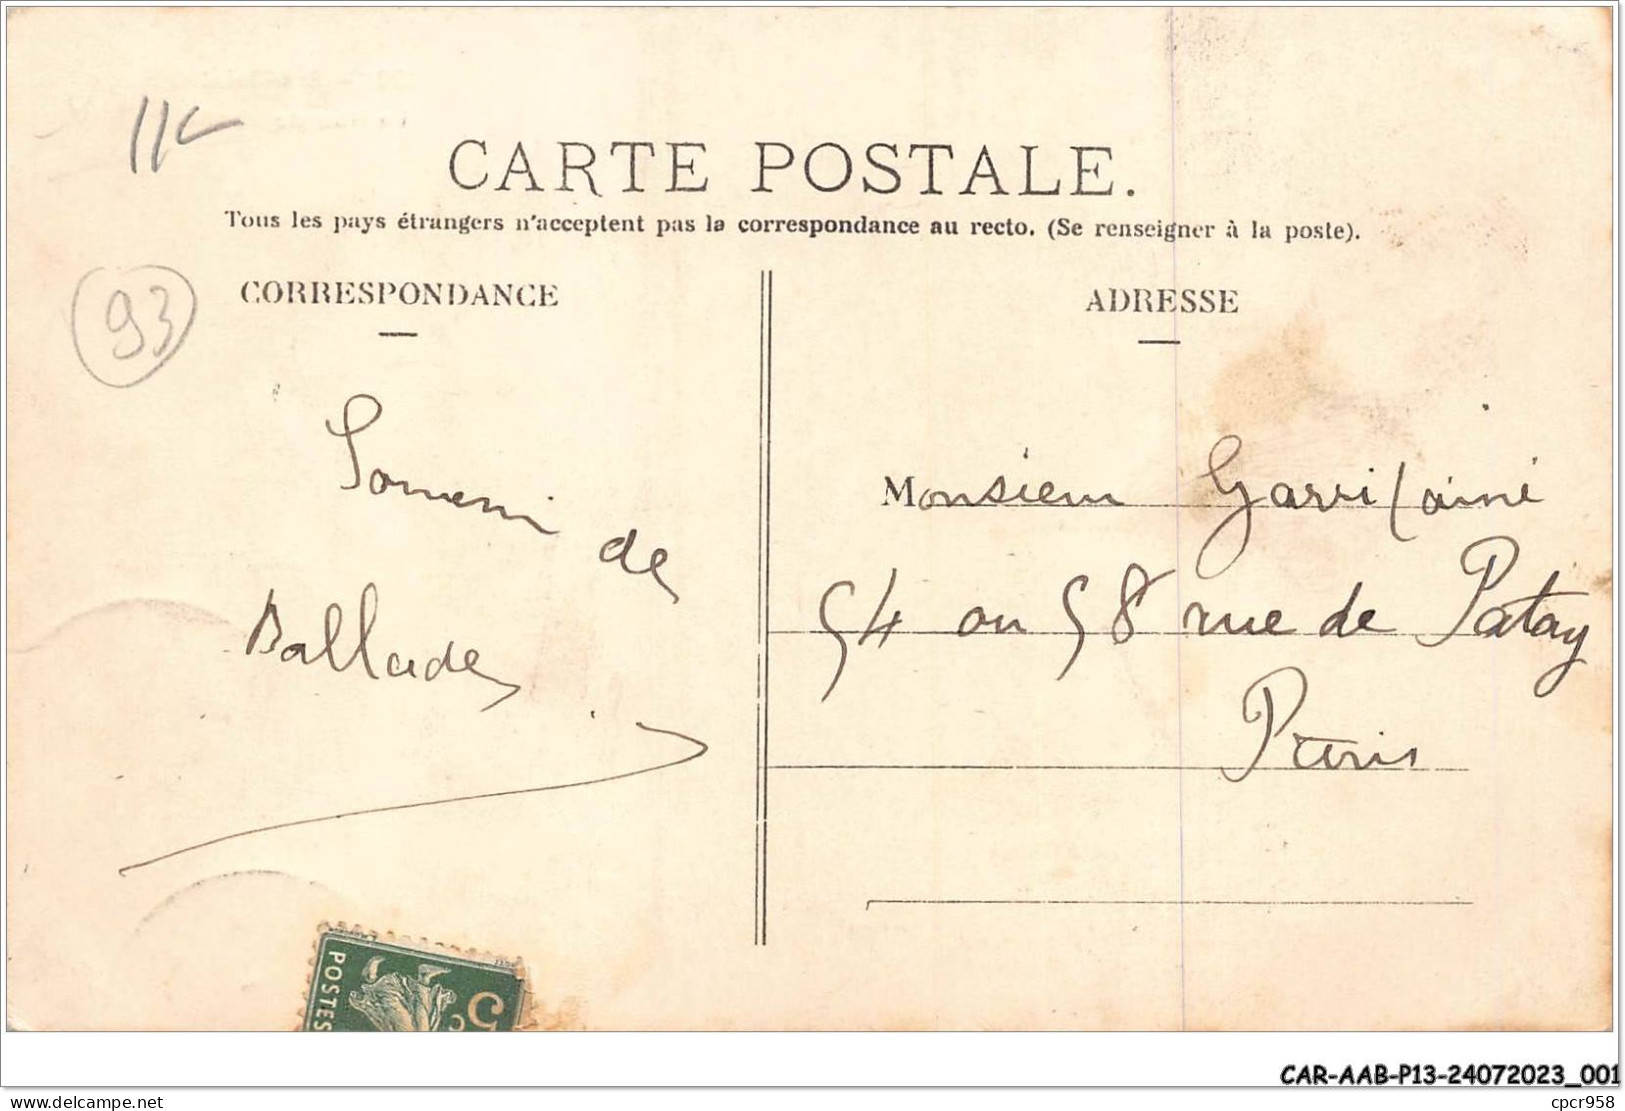 CARTE POSTALE.
Tous les pays étrangers n'acceptent pas la correspondance au recto. (Se renseigner à la poste).
93
CORRESPONDANCE
ADRESSE
Souvenir de
Ballade
Monsieur
54 ou 58 rue de Patay
Paris
POSTES
5c
CAR-AAB-P13-24072023_001
www.delcampe.net
cpcr958